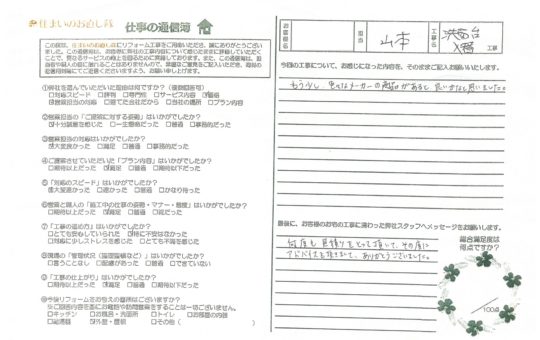 住まいのお直し隊
仕事の通信簿
この度は、住まいのお直し隊にリフォーム工事をご用命いただき、誠にありがとうござい
ました。この通信簿は、お客様に弊社の工事内容について感じたままに評価していただく
ことで、更なるサービスの向上を図るために実施しております。また、この通信簿は、担
①弊社を選んでいただいた理由は何ですか？（複数回答可）
□対応スピード □評判 □専門的 □サービス内容 □価格
□営業担当の対応 □建てた会社だから □当社の場所 □プラン内容
②営業担当の「ご提案に対する姿勢」はいかがでしたか？
□十分誠意を感じた □一生懸命だった □普通 □事務的だった
③営業担当の対応はいかがでしたか？
□大変良かった □満足 □普通 □事務的だった
④ご提案させていただいた「プラン内容」はいかがでしたか？
□期待以上だった □満足 □普通 □期待以下だった
⑤「対応のスピード」はいかがでしたか？
□大変速かった □速かった □普通 □かなり待った
⑥営業と職人の「施工中の仕事の姿勢・マナー・態度」はいかがでしたか？
□期待以上だった □満足 □普通 □嫌だった
⑦「工事の進め方」はいかがでしたか？
□とても安心していられた □特に不安はなかった
□対応に少しストレスを感じた □とても不満を感じた
⑧現場の「管理状況（整理整頓など）」はいかがでしたか？
□言うことなし □配慮があった □普通 □できていない
⑨「工事の仕上がり」はいかがでしたか？
□期待以上だった □満足 □普通 □期待以下だった
⑩今後リフォームをお考えの箇所はございますか？
※ご回答内容を基にお電話や訪問営業をすることは一切ございません。
□キッチン □お風呂・洗面所 □トイレ □お部屋の内装
□給湯器 □外壁・屋根 □その他（ ）
お客様名
担当
山本
工事名
洗面台
入替
工事
今回の工事について、お感じになった内容を、そのままご記入お願いいたします。
もう少し、色々なメーカーの商品があると、良いかなと思いました。
最後に、お客様のお宅の工事に携わった弊社スタッフへメッセージをお願いします。
何度も見積りをとって頂いて、その度に
アドバイスも頂きまして、ありがとうございました。
総合満足度は
何点ですか？
/100点